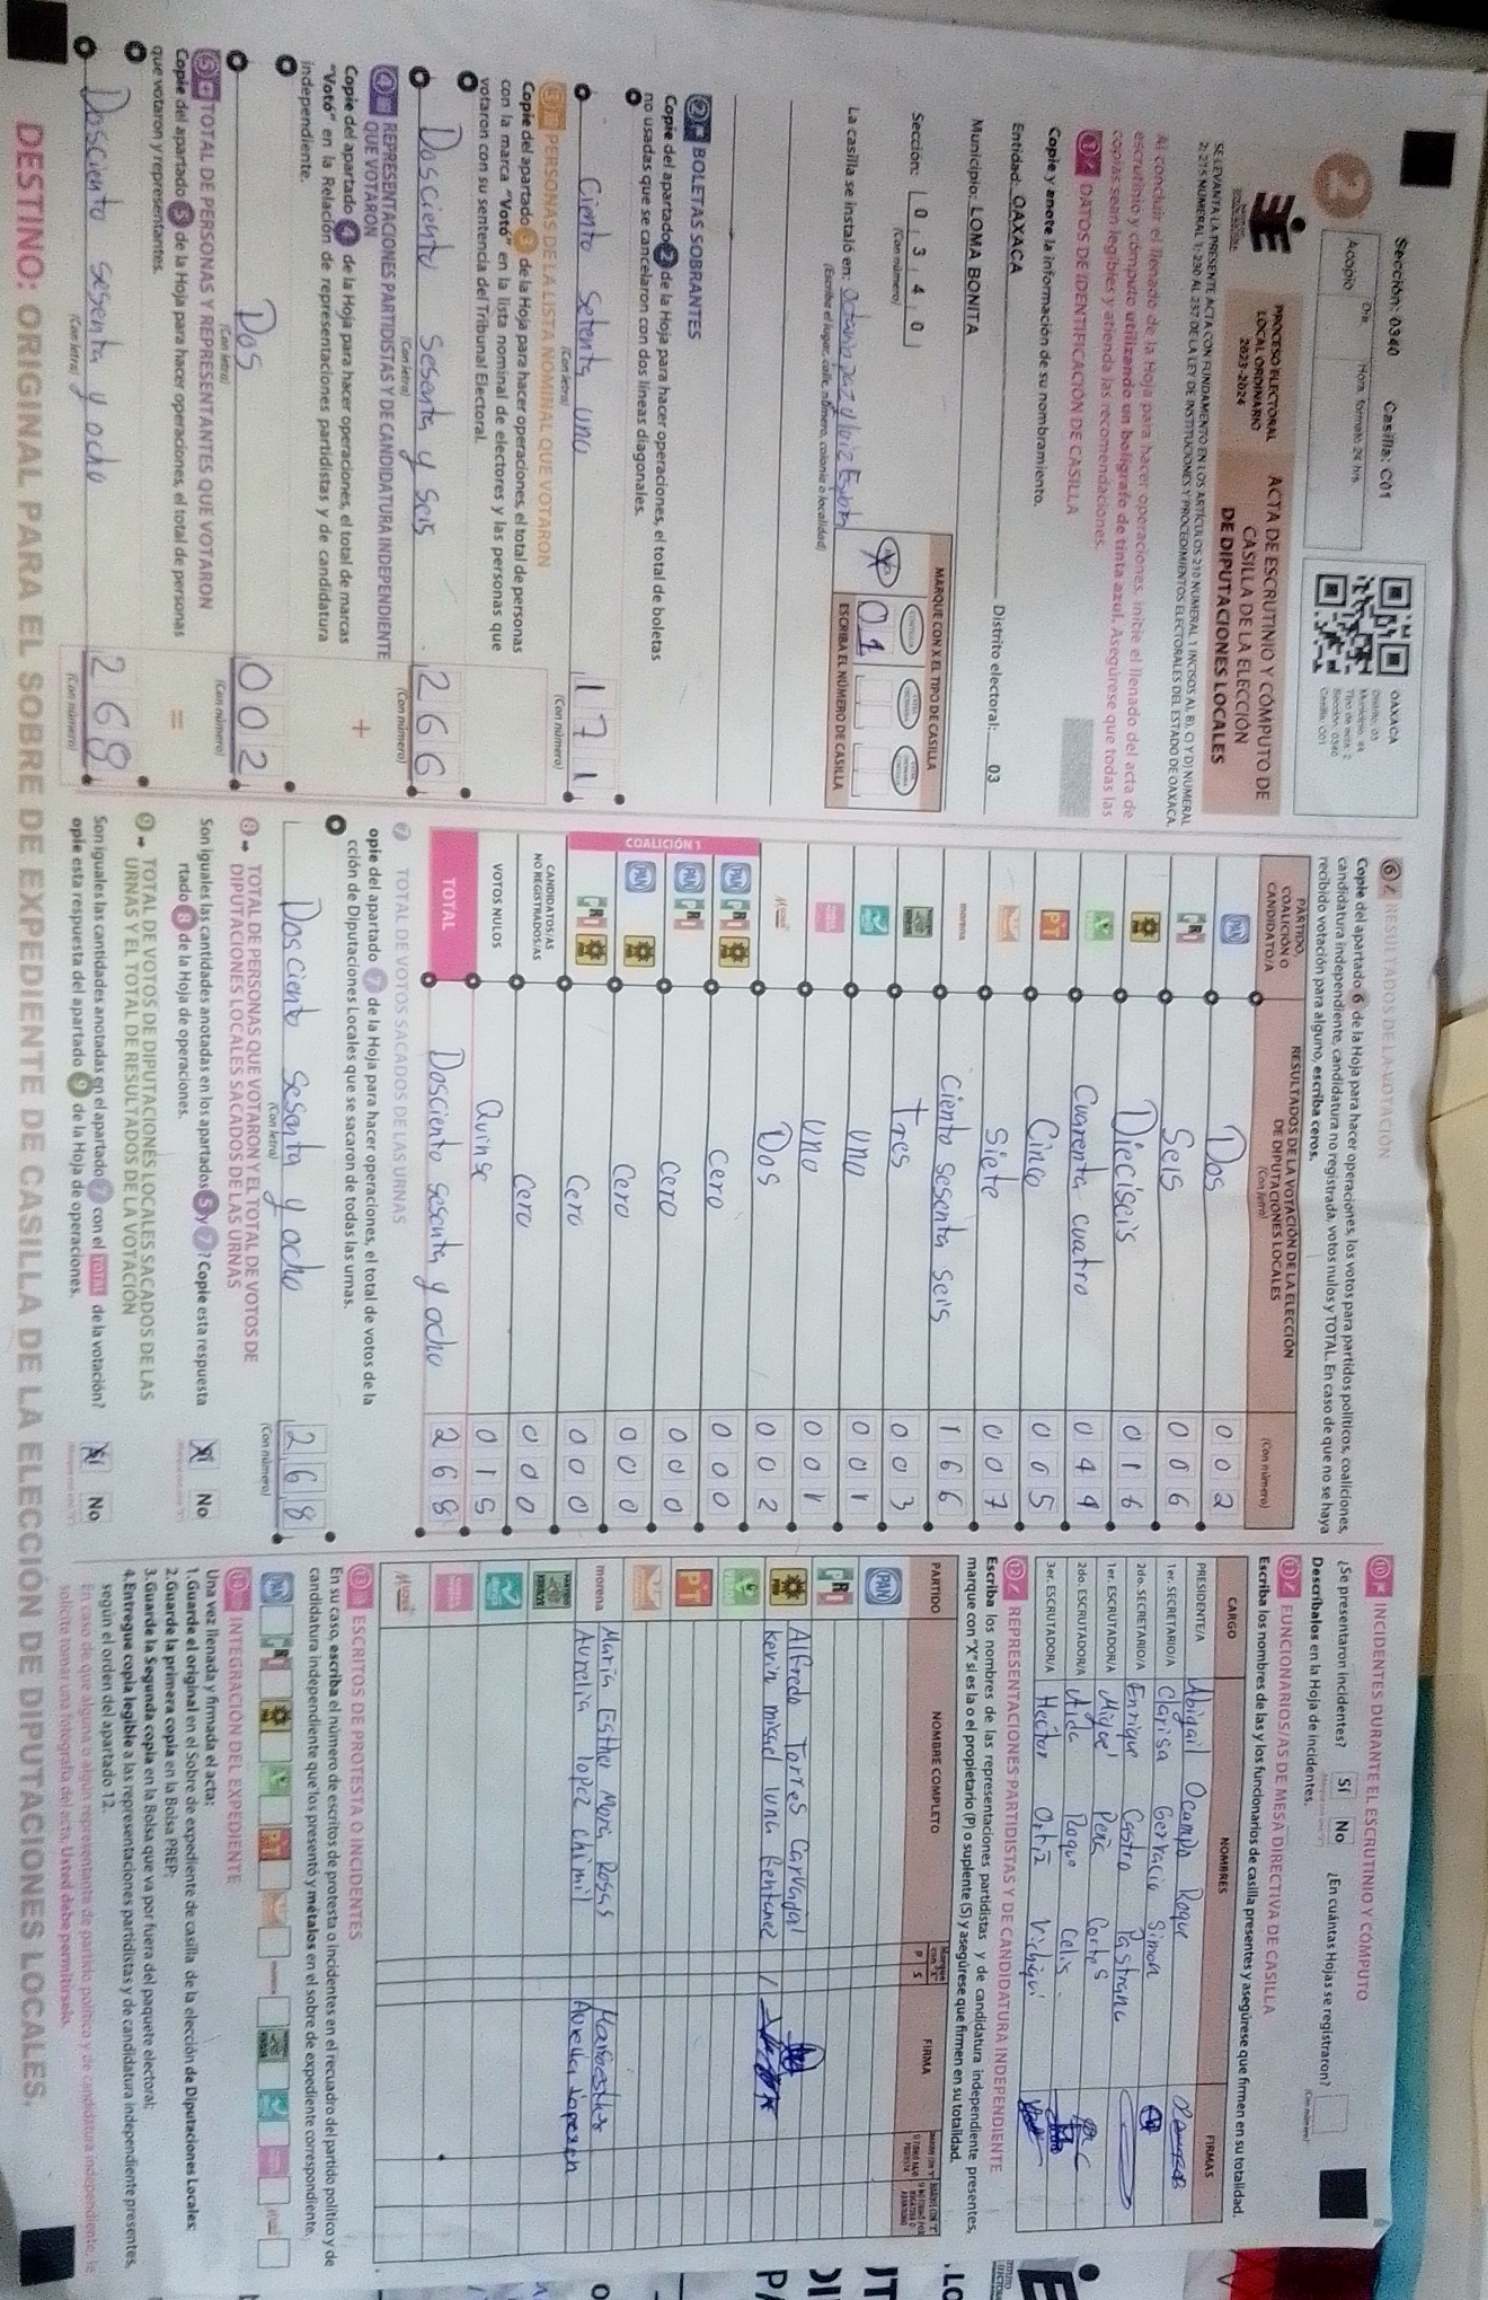 Sección: 0340 Casilla: C01
Día Hora formato 24 hrs.
Acopio
2
OAXACA
Distrito: 03
Tipo de acta: 2
Sección: 0340
Casilla: C01
PROCESO ELECTORAL
LOCAL ORDINARIO
2023-2024
ACTA DE ESCRUTINIO Y CÓMPUTO DE
CASILLA DE LA ELECCIÓN
DE DIPUTACIONES LOCALES
SE LEVANTA LA PRESENTE ACTA CON FUNDAMENTO EN LOS ARTÍCULOS 210 NUMERAL 1 INCISOS A), B), C) Y D) NUMERAL
2; 215 NUMERAL 1; 230 AL 237 DE LA LEY DE INSTITUCIONES Y PROCEDIMIENTOS ELECTORALES DEL ESTADO DE OAXACA.
Al concluir el llenado de la Hoja para hacer operaciones, inicie el llenado del acta de
escrutinio y cómputo utilizando un bolígrafo de tinta azul. Asegúrese que todas las
copias sean legibles y atienda las recomendaciones.
1 DATOS DE IDENTIFICACIÓN DE CASILLA
Copie y anote la información de su nombramiento.
Entidad: OAXACA Distrito electoral: 03
Municipio: LOMA BONITA
Sección: 0 3 4 0
(Con número)
MARQUE CON X EL TIPO DE CASILLA
X
ESCRIBA EL NÚMERO DE CASILLA
01
La casilla se instaló en: Octavio paz
(Escriba el lugar, calle, número, colonia o localidad)
2 BOLETAS SOBRANTES
Copie del apartado 2 de la Hoja para hacer operaciones, el total de boletas
no usadas que se cancelaron con dos líneas diagonales.
Ciento setenta uno 1 7 1
(Con letra) (Con número)
3 PERSONAS DE LA LISTA NOMINAL QUE VOTARON
Copie del apartado 3 de la Hoja para hacer operaciones, el total de personas
con la marca "Votó" en la lista nominal de electores y las personas que
votaron con su sentencia del Tribunal Electoral.
Dosciento sesenta y seis 2 6 6
(Con letra) (Con número)
4 REPRESENTACIONES PARTIDISTAS Y DE CANDIDATURA INDEPENDIENTE
QUE VOTARON
Copie del apartado 4 de la Hoja para hacer operaciones, el total de marcas
"Votó" en la Relación de representaciones partidistas y de candidatura
independiente.
+
Dos 0 0 2
(Con letra) (Con número)
5 TOTAL DE PERSONAS Y REPRESENTANTES QUE VOTARON
Copie del apartado 5 de la Hoja para hacer operaciones, el total de personas
que votaron y representantes.
=
Dosciento sesenta y ocho 2 6 8
(Con letra) (Con número)
6 RESULTADOS DE LA VOTACIÓN
Copie del apartado 6 de la Hoja para hacer operaciones, los votos para partidos políticos, coaliciones,
candidatura independiente, candidatura no registrada, votos nulos y TOTAL. En caso de que no se haya
recibido votación para alguno, escriba ceros.
PARTIDO,
COALICIÓN O
CANDIDATO/A
RESULTADOS DE LA VOTACIÓN DE LA ELECCIÓN
DE DIPUTACIONES LOCALES
(Con letra) (Con número)
PAN Dos 0 0 2
PRI Seis 0 0 6
Dieciseis 0 1 6
Cuarenta cuatro 0 4 4
PT Cinco 0 0 5
Siete 0 0 7
morena Ciento sesenta seis 1 6 6
tres 0 0 3
uno 0 0 1
uno 0 0 1
Dos 0 0 2
COALICIÓN 1
PAN PRI Cero 0 0 0
PAN PRI Cero 0 0 0
PAN Cero 0 0 0
PRI Cero 0 0 0
CANDIDATOS/AS
NO REGISTRADOS/AS Cero 0 0 0
VOTOS NULOS Quinse 0 1 5
TOTAL Dosciento sesenta y ocho 2 6 8
7 TOTAL DE VOTOS SACADOS DE LAS URNAS
opie del apartado 7 de la Hoja para hacer operaciones, el total de votos de la
cción de Diputaciones Locales que se sacaron de todas las urnas.
Dosciento sesenta y ocho 2 6 8
(Con letra) (Con número)
8 TOTAL DE PERSONAS QUE VOTARON Y EL TOTAL DE VOTOS DE
DIPUTACIONES LOCALES SACADOS DE LAS URNAS
Son iguales las cantidades anotadas en los apartados 5 y 7? Copie esta respuesta
rtado 8 de la Hoja de operaciones. Sí No
9 TOTAL DE VOTOS DE DIPUTACIONES LOCALES SACADOS DE LAS
URNAS Y EL TOTAL DE RESULTADOS DE LA VOTACIÓN
Son iguales las cantidades anotadas en el apartado 7 con el TOTAL de la votación?
opie esta respuesta del apartado 9 de la Hoja de operaciones. Sí No
10 INCIDENTES DURANTE EL ESCRUTINIO Y CÓMPUTO
¿Se presentaron incidentes? Sí No ¿En cuántas Hojas se registraron?
Descríbalos en la Hoja de incidentes.
11 FUNCIONARIOS/AS DE MESA DIRECTIVA DE CASILLA
Escriba los nombres de las y los funcionarios de casilla presentes y asegúrese que firmen en su totalidad.
CARGO NOMBRES FIRMAS
PRESIDENTE/A Abigail Ocampo Roque
1er. SECRETARIO/A Clarisa Gervacio Simon
2do. SECRETARIO/A Enrique Castro Pastrana
1er. ESCRUTADOR/A Miguel Peña Cortes
2do. ESCRUTADOR/A Aida Roque Celis
3er. ESCRUTADOR/A Hector Ortiz Vichiqui
12 REPRESENTACIONES PARTIDISTAS Y DE CANDIDATURA INDEPENDIENTE
Escriba los nombres de las representaciones partidistas y de candidatura independiente presentes,
marque con "X" si es la o el propietario (P) o suplente (S) y asegúrese que firmen en su totalidad.
PARTIDO NOMBRE COMPLETO P S FIRMA
PAN
PRI
Alfredo Torres Carvajal
Kevin misael luna
PT
morena Maria Esther Mora Rosas Mariaesther
Aurelia lopez chimil
13 ESCRITOS DE PROTESTA O INCIDENTES
En su caso, escriba el número de escritos de protesta o incidentes en el recuadro del partido político y de
candidatura independiente que los presentó y métalos en el sobre de expediente correspondiente.
PAN PRI PT morena
14 INTEGRACIÓN DEL EXPEDIENTE
Una vez llenada y firmada el acta:
1. Guarde el original en el Sobre de expediente de casilla de la elección de Diputaciones Locales;
2. Guarde la primera copia en la Bolsa PREP;
3. Guarde la Segunda copia en la Bolsa que va por fuera del paquete electoral;
4. Entregue copia legible a las representaciones partidistas y de candidatura independiente presentes,
según el orden del apartado 12.
En caso de que alguna o algún representante de partido político y de candidatura independiente, le
solicite tomar una fotografía del acta, Usted debe permitírselo.
DESTINO: ORIGINAL PARA EL SOBRE DE EXPEDIENTE DE CASILLA DE LA ELECCIÓN DE DIPUTACIONES LOCALES.